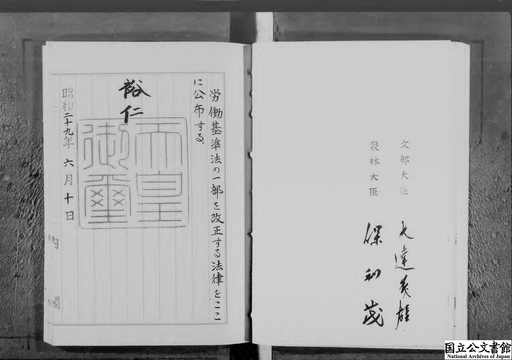 労働基準法の一部を改正する法律をここ
に公布する。
裕仁
天皇
御璽
昭和二十九年 六月 十日
内
文部大臣
大達茂雄
農林大臣
保利茂
国立公文書館
National Archives of Japan